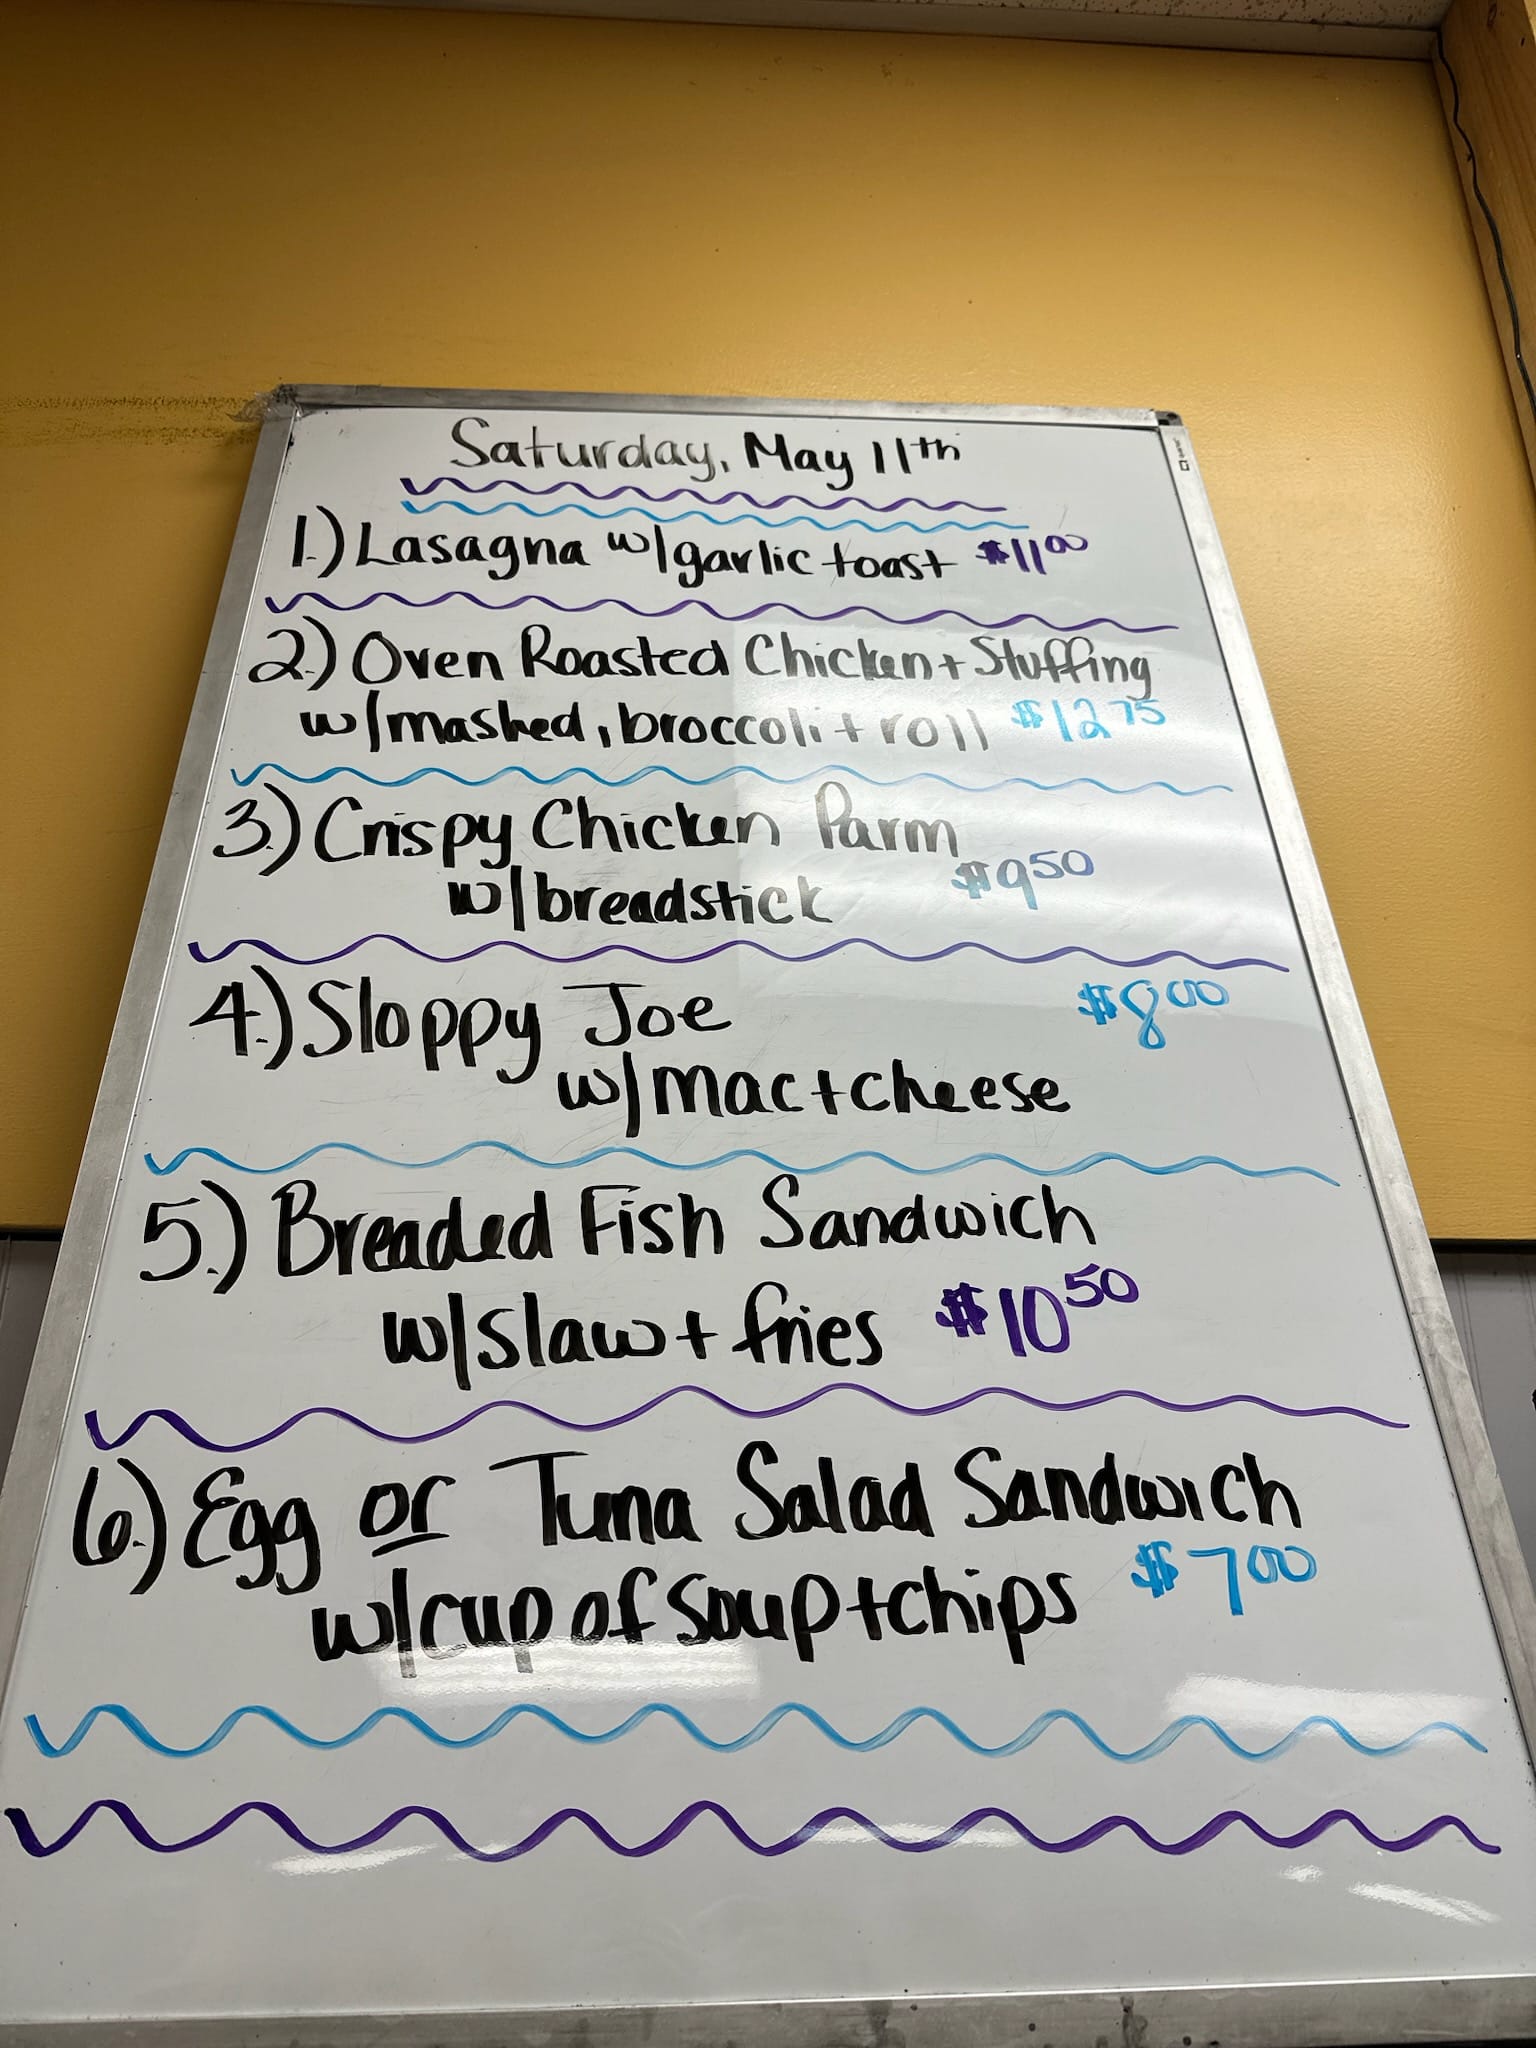 Saturday, May 11th
1.) Lasagna w/garlic toast $11.00
2.) Oven Roasted Chicken + Stuffing
w/mashed, broccoli + roll $12 75
3.) Crispy Chicken Parm
w/breadstick $9 50
4.) Sloppy Joe $8 00
w/mac + cheese
5.) Breaded Fish Sandwich
w/slaw + fries $10 50
6.) Egg or Tuna Salad Sandwich
w/cup of soup + chips $7 00